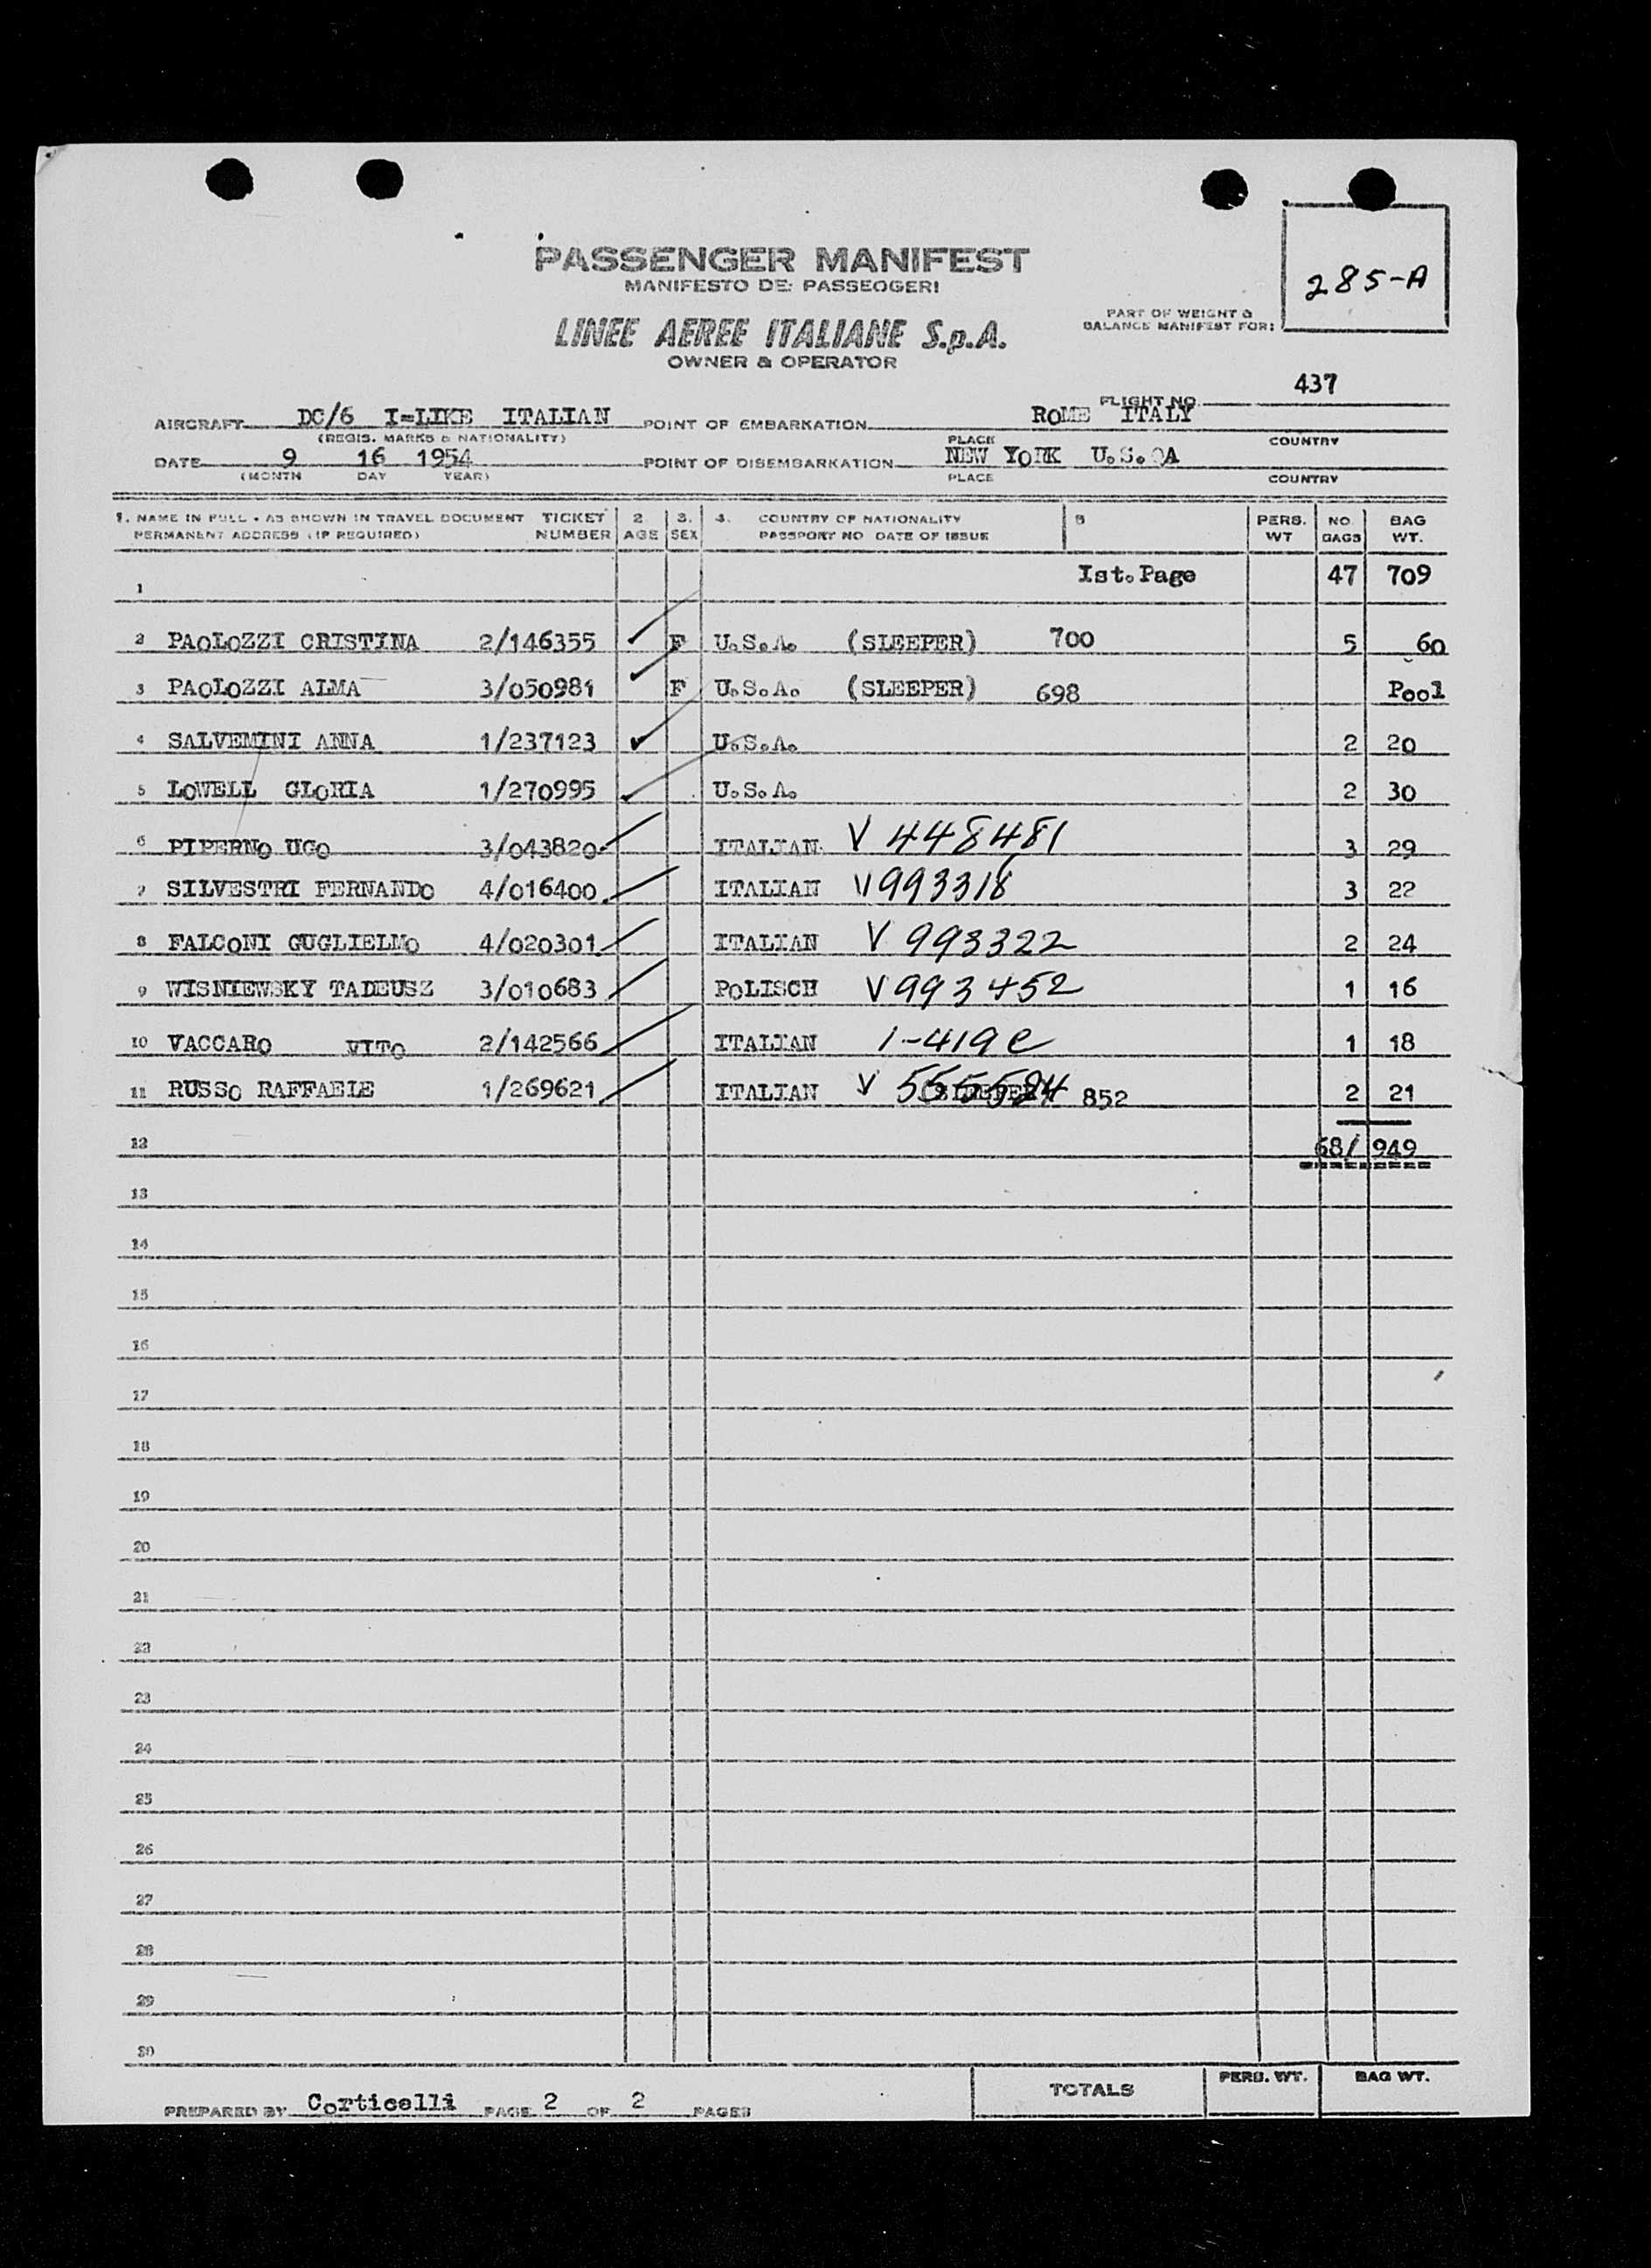 PASSENGER MANIFEST
MANIFESTO DEI PASSEGGERI
285-A
LINEE AEREE ITALIANE S.p.A.
PART OF WEIGHT &
BALANCE MANIFEST FOR:
OWNER & OPERATOR
FLIGHT NO. 437
AIRCRAFT DC/6 I=LIKE ITALIAN POINT OF EMBARKATION ROME ITALY
(REGIS. MARKS & NATIONALITY) PLACE COUNTRY
DATE 9 16 1954 POINT OF DISEMBARKATION NEW YORK U.S. A
(MONTH DAY YEAR) PLACE COUNTRY
1. NAME IN FULL - AS SHOWN IN TRAVEL DOCUMENT TICKET 2. 3. 4. COUNTRY OF NATIONALITY 5 PERS. NO. BAG
PERMANENT ADDRESS (IF REQUIRED) NUMBER AGE SEX PASSPORT NO DATE OF ISSUE WT BAGS WT.
1 Ist.Page 47 709
2 PAOLOZZI CRISTINA 2/146355 F U.S.A. (SLEEPER) 700 5 60
3 PAOLOZZI ALMA 3/050981 F U.S.A. (SLEEPER) 698 Pool
4 SALVEMINI ANNA 1/237123 U.S.A. 2 20
5 LOWELL GLORIA 1/270995 U.S.A. 2 30
6 PIPERNO UGO 3/043820 ITALIAN V 448481 3 29
7 SILVESTRI FERNANDO 4/016400 ITALIAN V993318 3 22
8 FALCONI GUGLIELMO 4/020301 ITALIAN V 993322 2 24
9 WISNIEWSKY TADEUSZ 3/010683 POLISCH V993452 1 16
10 VACCARO VITO 2/142566 ITALIAN 1-419 C 1 18
11 RUSSO RAFFAELE 1/269621 ITALIAN V 852 2 21
12 68/ 949
13
14
15
16
17
18
19
20
21
22
23
24
25
26
27
28
29
30
TOTALS PERS. WT. BAG WT.
PREPARED BY Corticelli PAGE 2 OF 2 PAGES